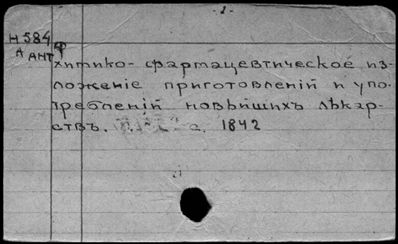 Н 584
А АНТ
Химико-фармацевтическое из-
ложеніе приготовленій и упо-
требленій новѣйшихъ лѣкар-
ствъ. с. 1842